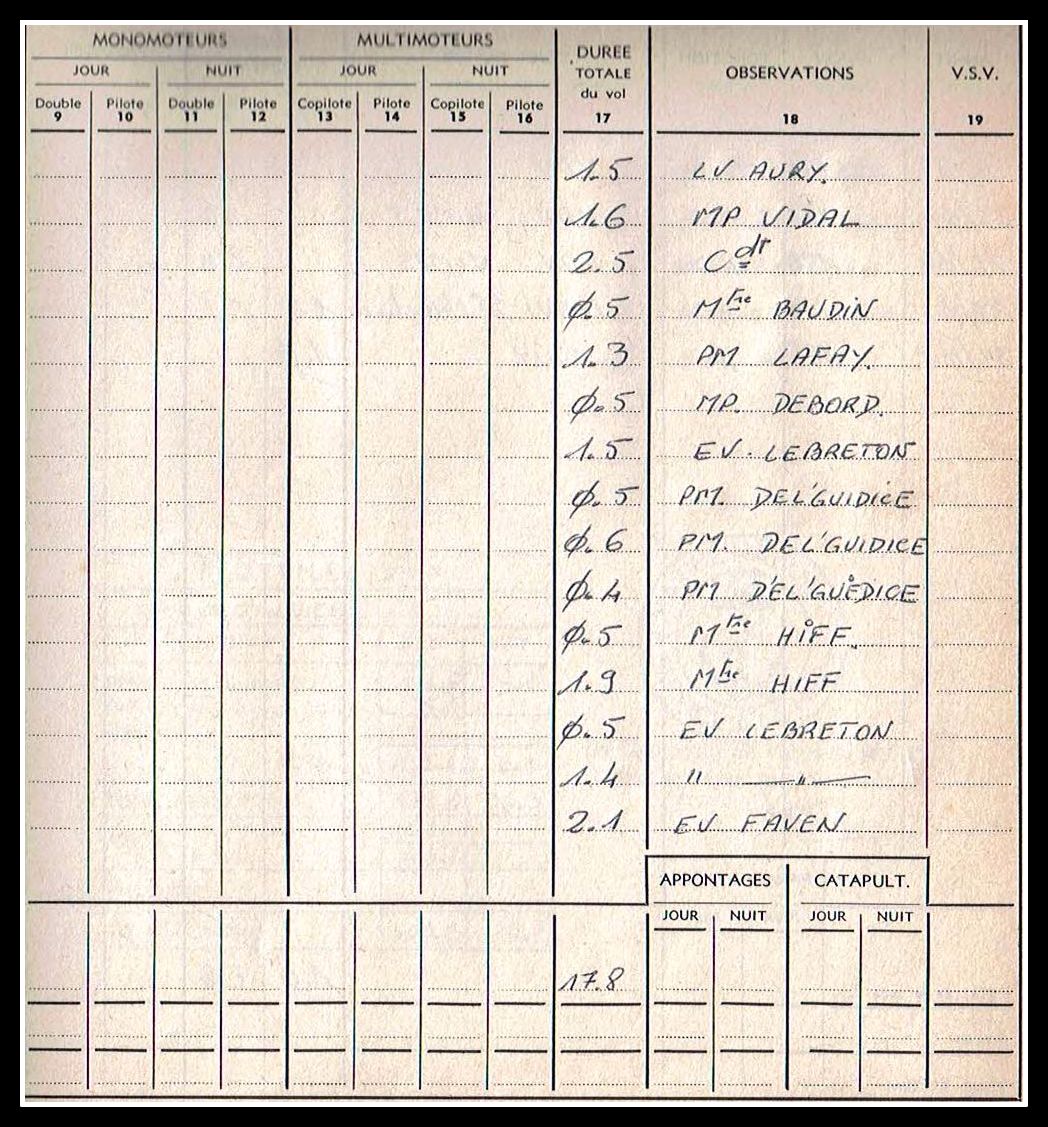 MONOMOTEURS MULTIMOTEURS DUREE TOTALE du vol OBSERVATIONS V.S.V.
JOUR NUIT JOUR NUIT
Double Pilote Double Pilote Copilote Pilote Copilote Pilote
9 10 11 12 13 14 15 16 17 18 19
1.5 LV AURY.
1.6 MP VIDAL
2.5 Cdt
Ø.5 Mtre BAUDIN
1.3 PM LAFAY.
Ø.5 MP. DEBORD.
1.5 EV. LEBRETON
Ø.5 PM. DEL'GUIDICE
Ø.6 PM. DEL'GUIDICE
Ø.4 PM D'EL'GUÉDICE
Ø.5 Mtre HIFF.
1.9 Mtre HIFF
Ø.5 EV LEBRETON
1.4 " —"—
2.1 EV FAVEN
APPONTAGES CATAPULT.
JOUR NUIT JOUR NUIT
17.8